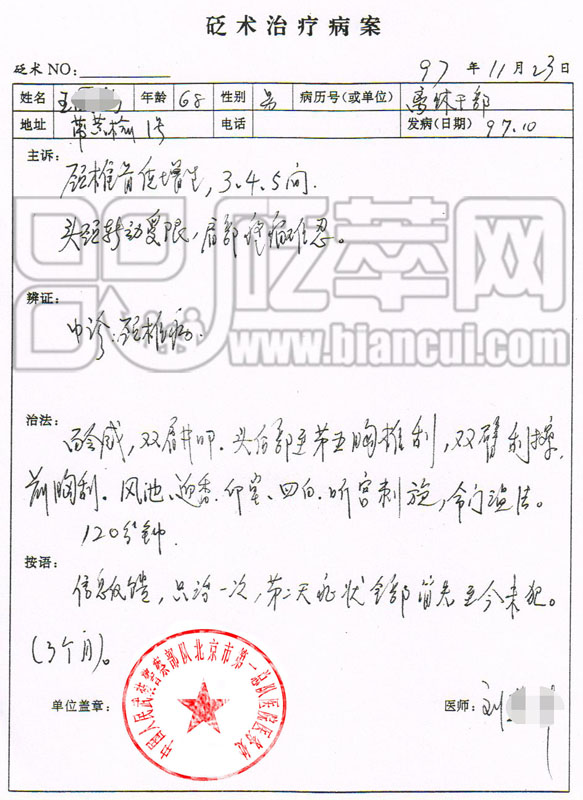 砭术治疗病案
砭术NO: 97年11月23日
姓名 王 年龄 68 性别 男 病历号(或单位) 离休干部
地址 1号 电话 发病(日期) 97.10
主诉:
颈椎骨质增生,3.4.5间.
头颈转动受限,肩部疼痛难忍。
砭萃网
www.biancui.com
辨证:
中诊:颈椎病.
治法:
百会 ,双肩井叩.头后部至第五胸椎刮,双臂刮
前胸刮.风池、迎香.印堂、四白、听宫刺激,命门温法。
120分钟.
按语:
信息反馈,只治一次,第二天症状全部消失至今未犯。
(3个月)。
中国人民武装警察部队北京市第一总队医院医务处
单位盖章: 医师:刘